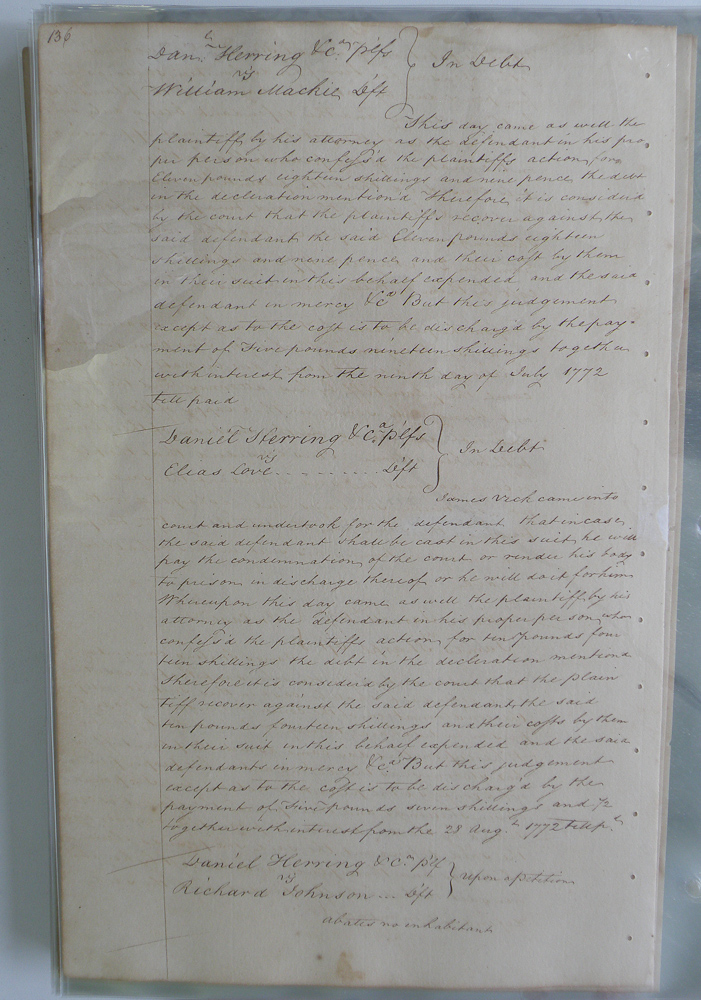 136
Danl. Herring &Ca. plfs
vs
In Debt
William Mackie Dft
This day came as well the
plaintiff by his attorney as the defendant in his pro
per person who confess'd the plaintiffs action for
Eleven pounds eighteen shillings and nine pence the debt
in the decleration mention'd Therefore it is considerd
by the court that the plaintiff's recover against the
said defendant the said Eleven pounds eighteen
shillings and nine pence and their cost by them
in their suit in this behalf expended and the said
defendant in mercy &Ca But this judgement
except as to the cost is to be discharg'd by the pay-
ment of Five pounds nineteen shillings together
with interest from the ninth day of July 1772
till paid
Daniel Herring &Ca. plfs
vs
In Debt
Elias Love Dft
James Vick came into
court and undertook for the defendant that in case
the said defendant shall be cast in this suit he will
pay the condemnation of the court or render his body
to prison in discharge thereof or he will do it for him
Whereupon this day came as well the plaintiff by his
attorney as the defendant in his proper person who
confess'd the plaintiffs action for ten pounds four
teen shillings the debt in the decleration mention'd
Therefore it is considerd by the court that the plain
tiff recover against the said defendant the said
ten pounds fourteen shillings and their costs by them
in their suit in this behalf expended and the said
defendants in mercy &Ca But this judgement
except as to the cost is to be discharg'd by the
payment of Five pounds seven shillings and 7/2
together with interest from the 28 Augt. 1772 till pd.
Daniel Herring &Ca. plf
vs
upon a petition
Richard Johnson Dft
abates no inhabitant